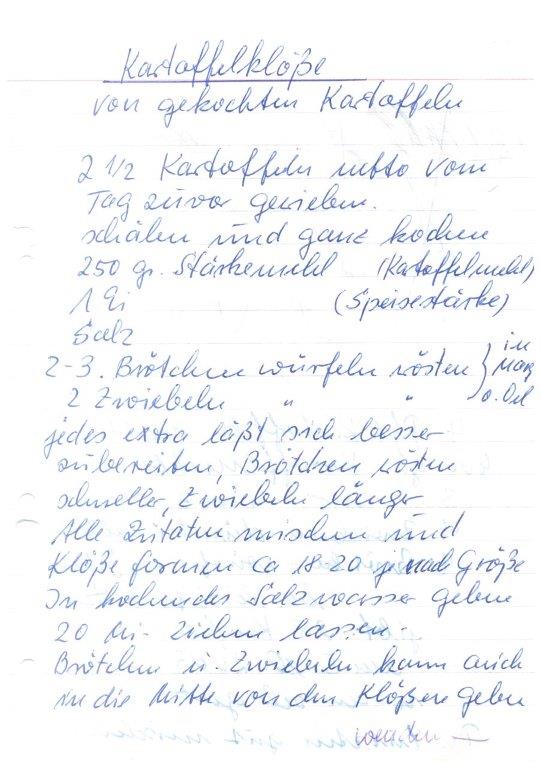 Kartoffelklöße
von gekochten Kartoffeln
2 1/2 Kartoffeln netto vom
Tag zuvor gerieben.
schälen und ganz kochen
250 gr. Stärkemehl (Kartoffelmehl)
1 Ei (Speisestärke)
Salz
2-3. Brötchen würfeln rösten } in Marg
2 Zwiebeln " " o. Oel
jedes extra läßt sich besser
zubereiten, Brötchen rösten
schneller, Zwiebeln länger
Alle Zutaten mischen und
Klöße formen ca 18 20 je nach Größe
In kochendes Salzwasser geben
20 Mi- ziehen lassen-
Brötchen u. Zwiebeln kann auch
in die Mitte von den Klößen geben
werden -